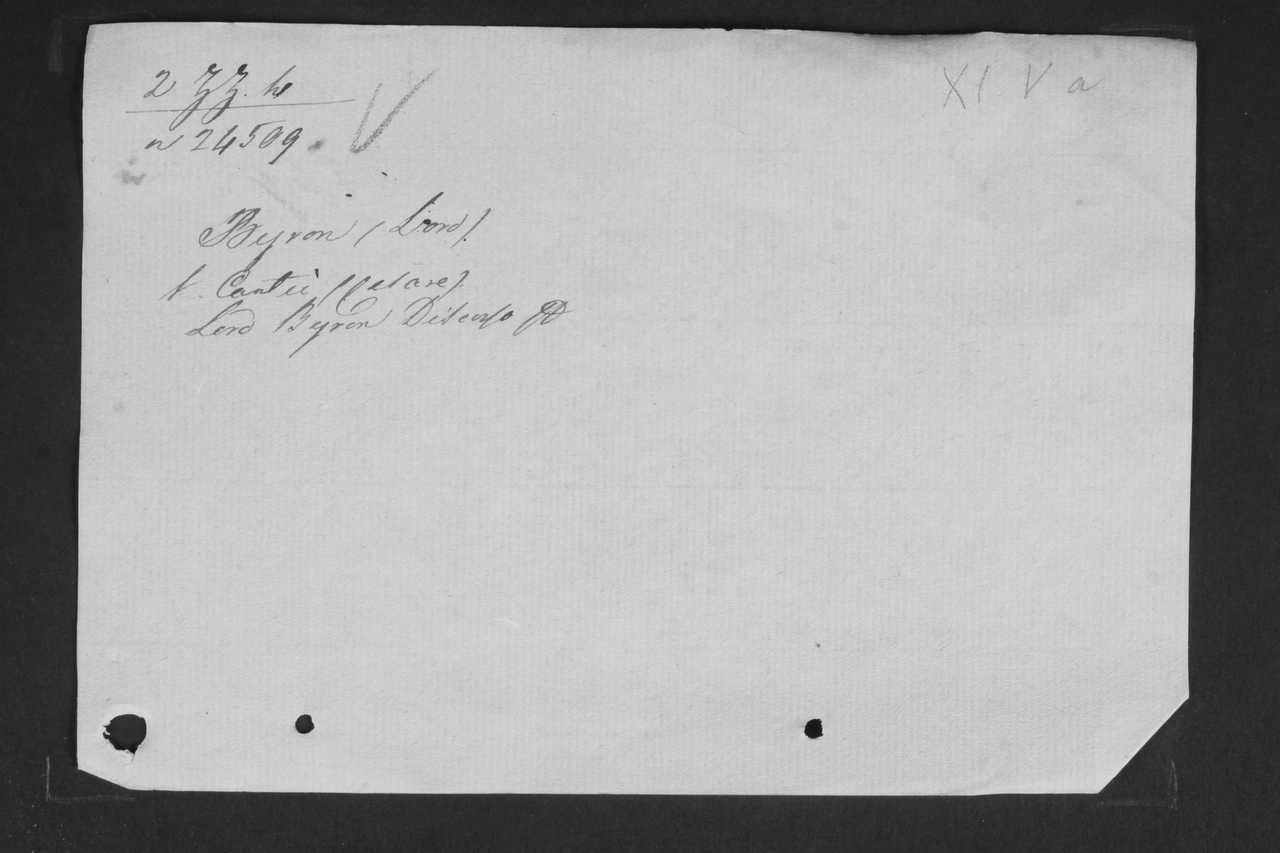 2 ZZ. h
XI V a
n 24509.
V
Byron (Lord).
V. Cantù (Cesare).
Lord Byron Discorso &